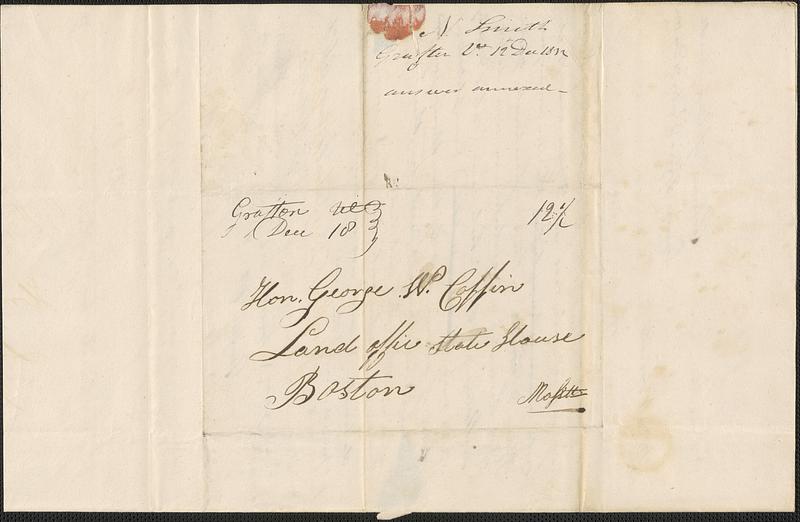 N. Smith
Grafton Vt. 12 Dec 1832
answer annexed -
Grafton Vt
Dec 13
12 1/2
Hon. George W. Coffin
Land office State House
Boston
Massts